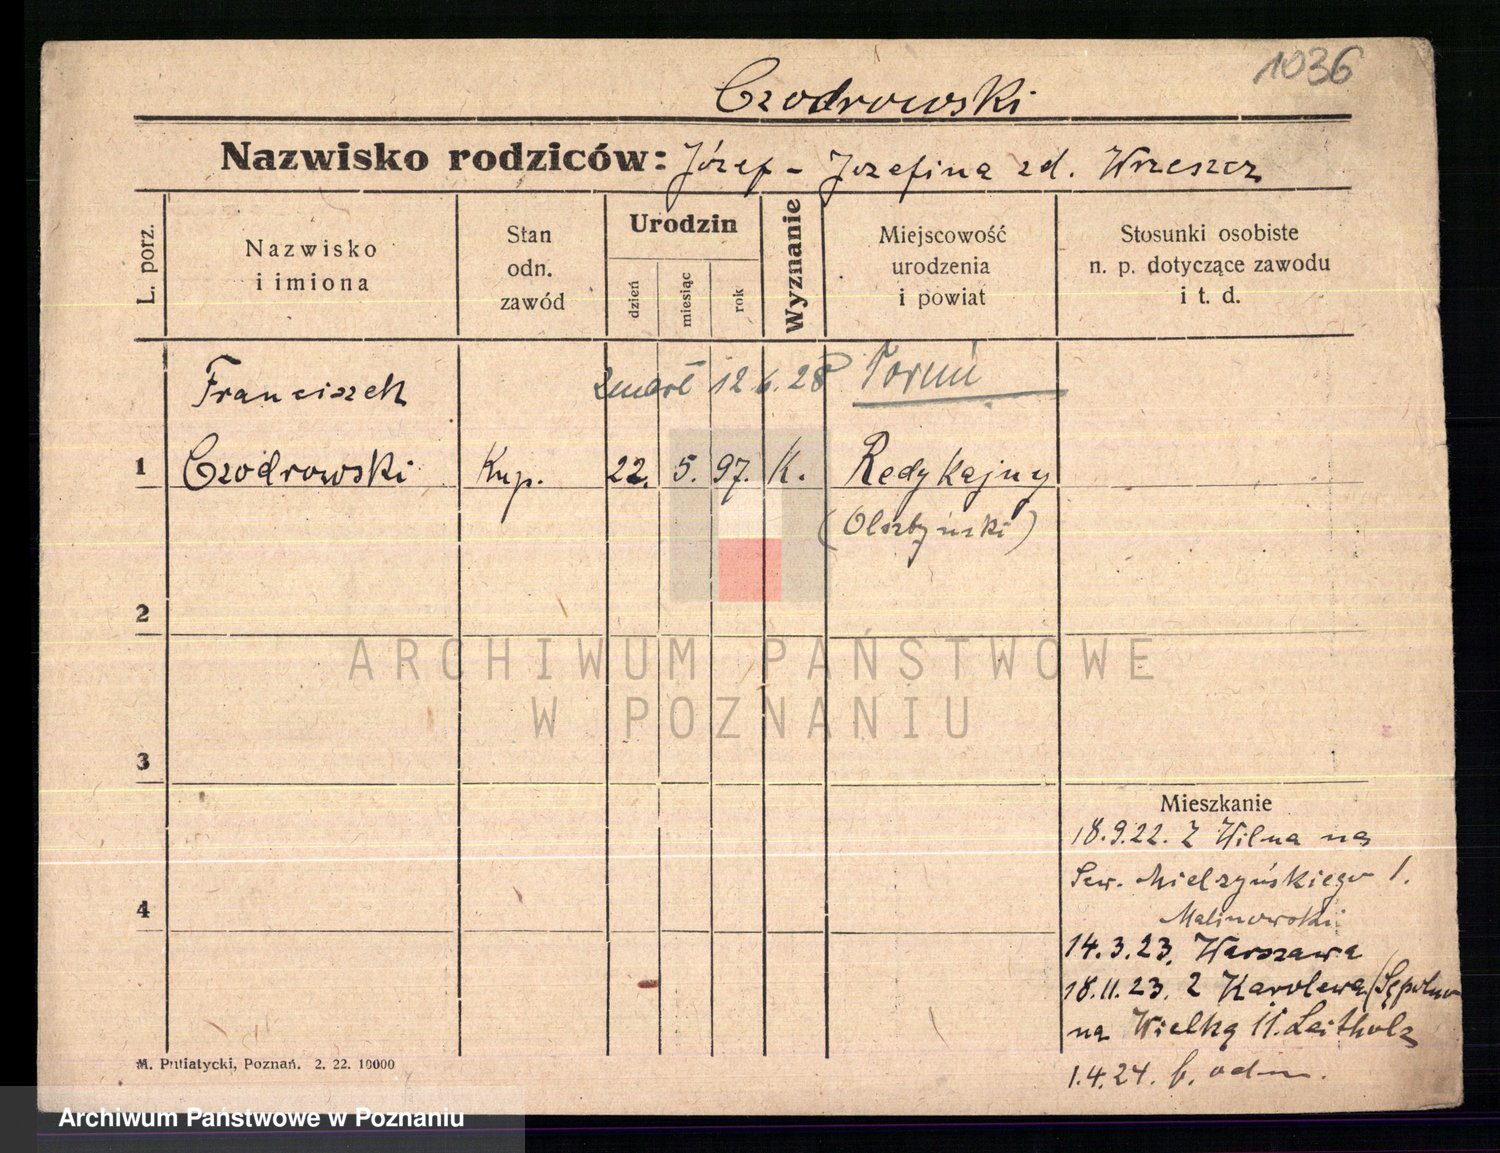 1036
Czodrowski
Nazwisko rodziców: Józef - Jozefina zd. Wrzeszcz
L. porz.
Nazwisko
i imiona
Stan
odn.
zawód
Urodzin
dzień
miesiąc
rok
Wyznanie
Miejscowość
urodzenia
i powiat
Stosunki osobiste
n. p. dotyczące zawodu
i t. d.
Franciszek
zmarł 12 6. 28 Toruń
1 Czodrowski Kup. 22. 5. 97. K. Redykajny
(Olsztyński)
2
ARCHIWUM PAŃSTWOWE
W POZNANIU
3
Mieszkanie
18.9.22. Z Wilna na
Sew. Mielżyńskiego 1.
4
Malinowski
14.3.23. Warszawa
18.11.23. Z Karolewa (Sępolno
na Wielką 11. Leitholz
1.4.24. b. odm.
M. Putiatycki, Poznań. 2. 22. 10000
Archiwum Państwowe w Poznaniu